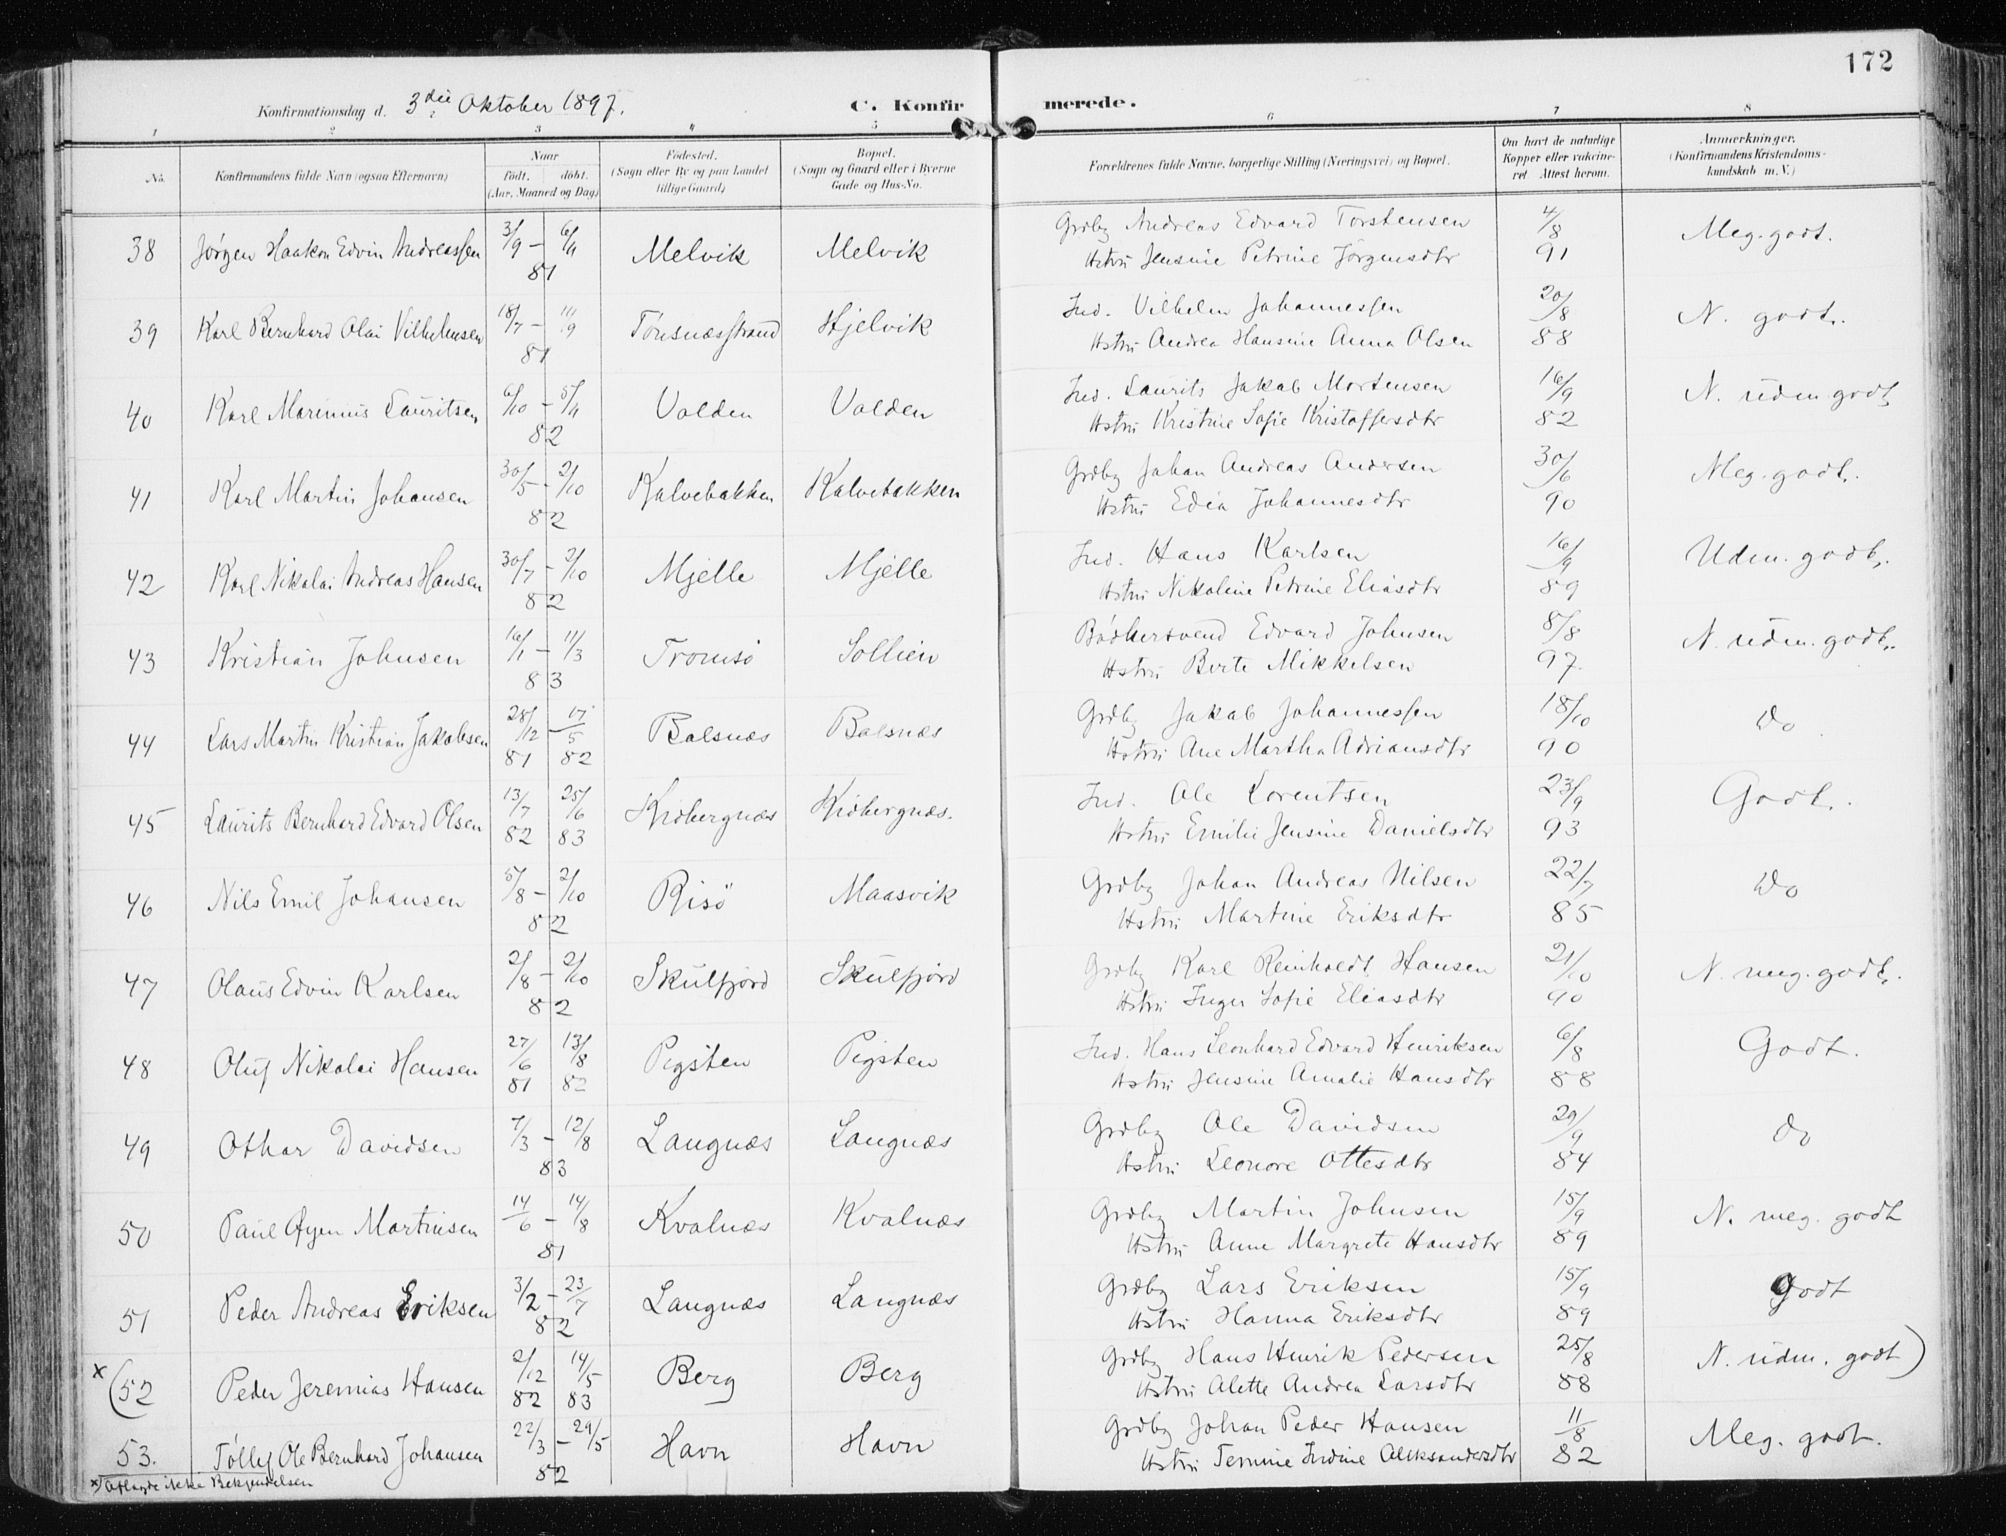 172
Konfirmationsdag d. 3die Oktober 1897. C. Konfirmerede.
1 2 3 4 5 6 7 8
No. Konfirmandens fulde Navn (ogsaa Efternavn) Naar født. døbt. (Aar, Maaned og Dag) Fødested. (Sogn eller By og paa Landet tillige Gaard) Bopæl. (Sogn og Gaard eller i Byerne Gade og Hus-No. Forældrenes fulde Navne, borgerlige Stilling (Næringsvei) og Bopæl. Om havt de naturlige Kopper eller vaccineret. Attest herom. Anmærkninger. (Konfirmandens Kristendomskundskab m. V.)
38 Jørgen Haakon Edvin Andreassen 3/9 – 6/11 81 Melvik Melvik Grdbg Andreas Edvard Torstensen 4/8 Meg. godt.
Hstru Jensine Petrine Jørgensdtr 91
39 Karl Bernhard Olai Vilhelmsen 18/7 – 11/9 81 Tønsnæsstrand Hjelvik Ind. Vilhelm Johannessen 20/8 N. godt.
Hstru Andrea Hansine Anna Olsen 88
40 Karl Marinius Lauritsen 6/10 – 5/11 82 Valden Valden Ind. Laurits Jakab Mortensen 16/9 N. udm godt
Hstru Kristine Sofie Kristoffersdtr 82
41 Karl Martin Johansen 30/5 – 2/10 82 Kalvebakken Kalvebakken Grdbg Johan Andreas Andersen 30/6 Meg. godt.
Hstru Edia Johannesdtr 90
42 Karl Nikolai Andreas Hansen 30/7 – 2/10 82 Mjelle Mjelle Ind. Hans Karlsen 16/9 Udm. godt.
Hstru Nikoline Petrine Eliasdtr 89
43 Kristian Johnsen 16/1 – 11/3 83 Tromsö Sollien Bødkersvend Edvard Johnsen 8/8 N. udm. godt.
Hstru Berte Mikkelsen 97.
44 Lars Martin Kristian Jakobsen 28/12 – 17/5 81 82 Balsnæs Balsnæs Grdbg Jakob Johannessen 18/10 Do
Hstru Ane Martha Adriansdtr 90
45 Laurits Bernhard Edvard Olsen 13/7 25/6 82 83 Kidbergnæs Kidbergnæs. Ind. Ole Lorentsen 23/9 Godt.
Hstru Emilie Jensine Danielsdtr 93
46 Nils Emil Johansen 5/8 – 2/10 82 Risö Maasvik Grdbg Johan Andreas Nilsen 22/7 Do
Hstru Martine Eriksdtr 85
47 Olaus Edvin Karlsen 2/8 – 2/10 82 Skulfjord Skulfjord Grdbg Karl Reinholdt Hansen 21/10 N. meg. godt.
Hstru Inger Sofie Eliasdtr 90
48 Oluf Nikolai Hansen 27/6 13/8 81 82 Pigsten Pigsten Ind. Hans Leonhard Edvard Henriksen 6/8 Godt.
Hstru Jensine Amalie Hansdtr 88
49 Othar Davidsen 7/3 – 12/8 83 Langnæs Langnæs Grdbg Ole Davidsen 29/9 do
Hstru Leonore Ottesdtr 84
50 Paul Øyen Martinsen 14/6 – 14/8 81 Kvalnæs Kvalnæs Grdbg Martin Johnsen 15/9 N. meg. godt
Hstru Anne Margrete Hansdtr 89
51 Peder Andreas Eriksen 3/2 – 23/7 82 Langnæs Langnæs Grdbg Lars Eriksen 15/9 Godt
Hstru Hanna Eriksdtr 89
x (52 Peder Jeremias Hansen 2/12 14/5 82 83 Berg Berg Grdbg Hans Henrik Pedersen 25/8 N. udm. godt)
Hstru Alette Andrea Larsdtr 88
53. Tølløf Ole Bernhard Johansen 22/3 – 29/5 82 Havn Havn Grdbg Johan Peder Hansen 11/8 Meg. godt.
Hstru Temine Indine Aleksandersdtr 82
x) Aflagde ikke Bekjendelsen